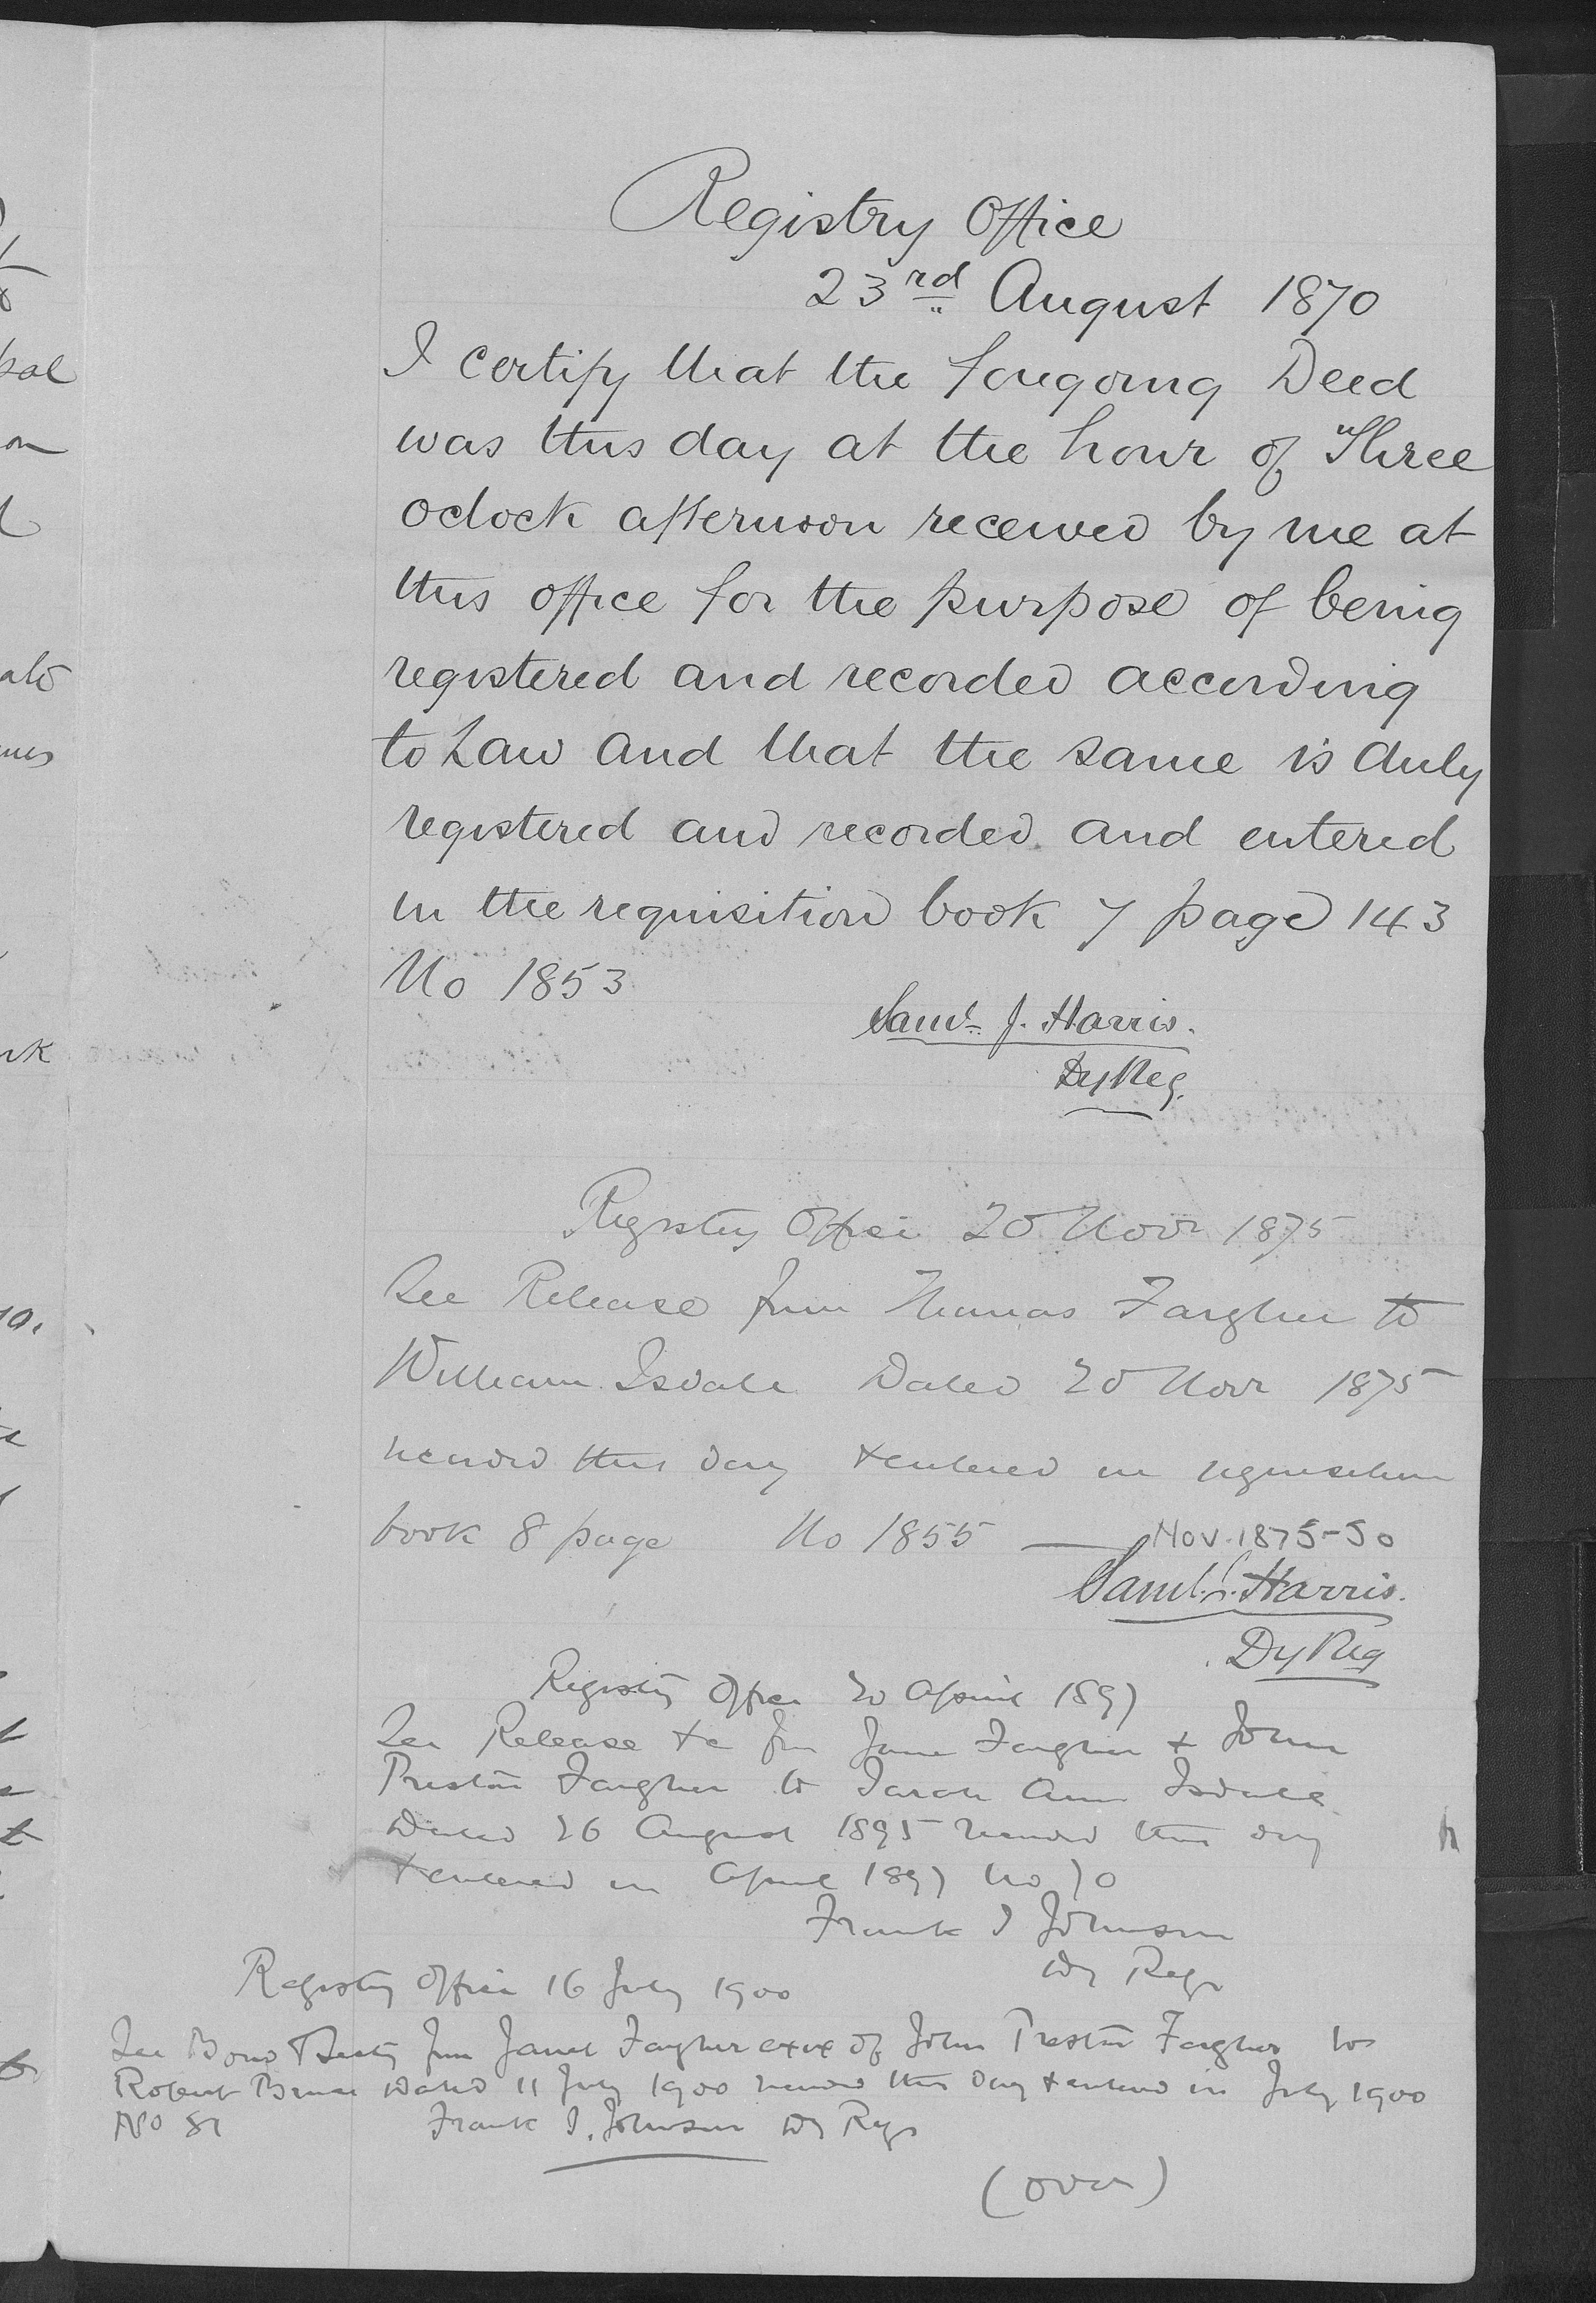 Registry Office
23rd August 1870
I certify that the foregoing Deed
was this day at the hour of Three
oclock afternoon received by me at
this office for the purpose of being
registered and recorded according
to Law and that the same is duly
registered and recorded and entered
in the requisition book 7 page 143
No 1853
Saml. J. Harris.
Dy Reg.
Registry Office 20 Novr 1875
See Release from Thomas Fargher to
William Isdale Dated 20 Novr 1875
recorded this day & entered in requisition
book 8 page No 1855 — Nov. 1875-50
Saml. J. Harris.
Dy Reg
Registry Office 20 April 1897
See Release &c from Jane Fargher & John
Preston Fargher to Sarah Ann Isdale
Dated 26 August 1895 recorded this day
& entered in April 1897 No 70
Frank I Johnson
Dy Regr
Registry Office 16 July 1900
See Bond & Security from Janet Fargher exix of John Preston Fargher to
Robert Bruce Dated 11 July 1900 recorded this day & entered in July 1900
No 81 Frank I. Johnson Dy Regr
(over)